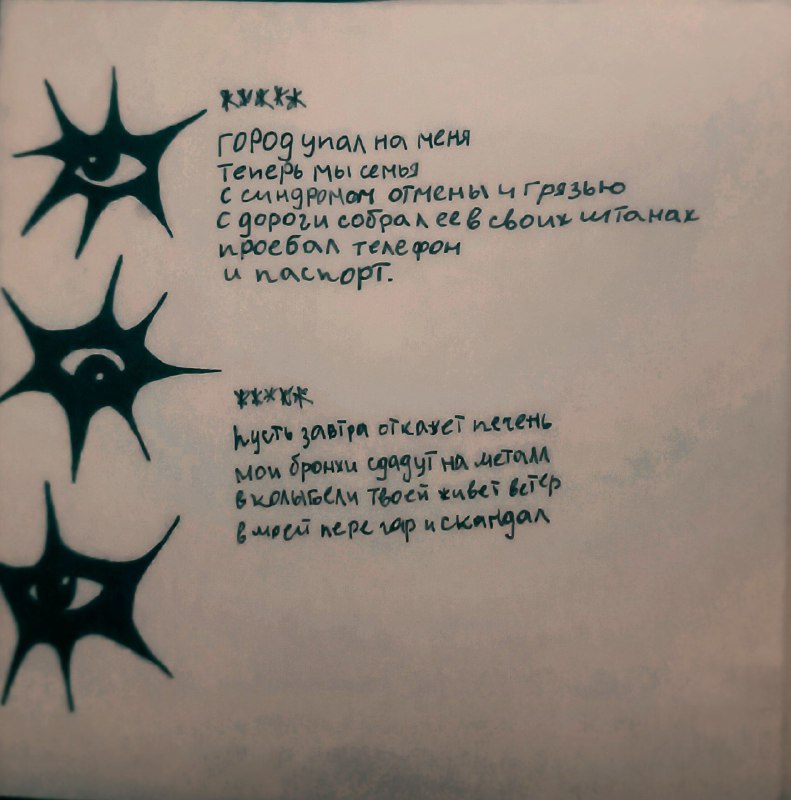 *****
ГОРОД упал на меня
теперь мы семья
с синдромом отмены и грязью
с дороги собрал ее в своих штанах
проебал телефон
и паспорт.
*****
пусть завтра откажет печень
мои бронхи сдадут на металл
в колыбели твоей живет ветер
в моей перегар и скандал